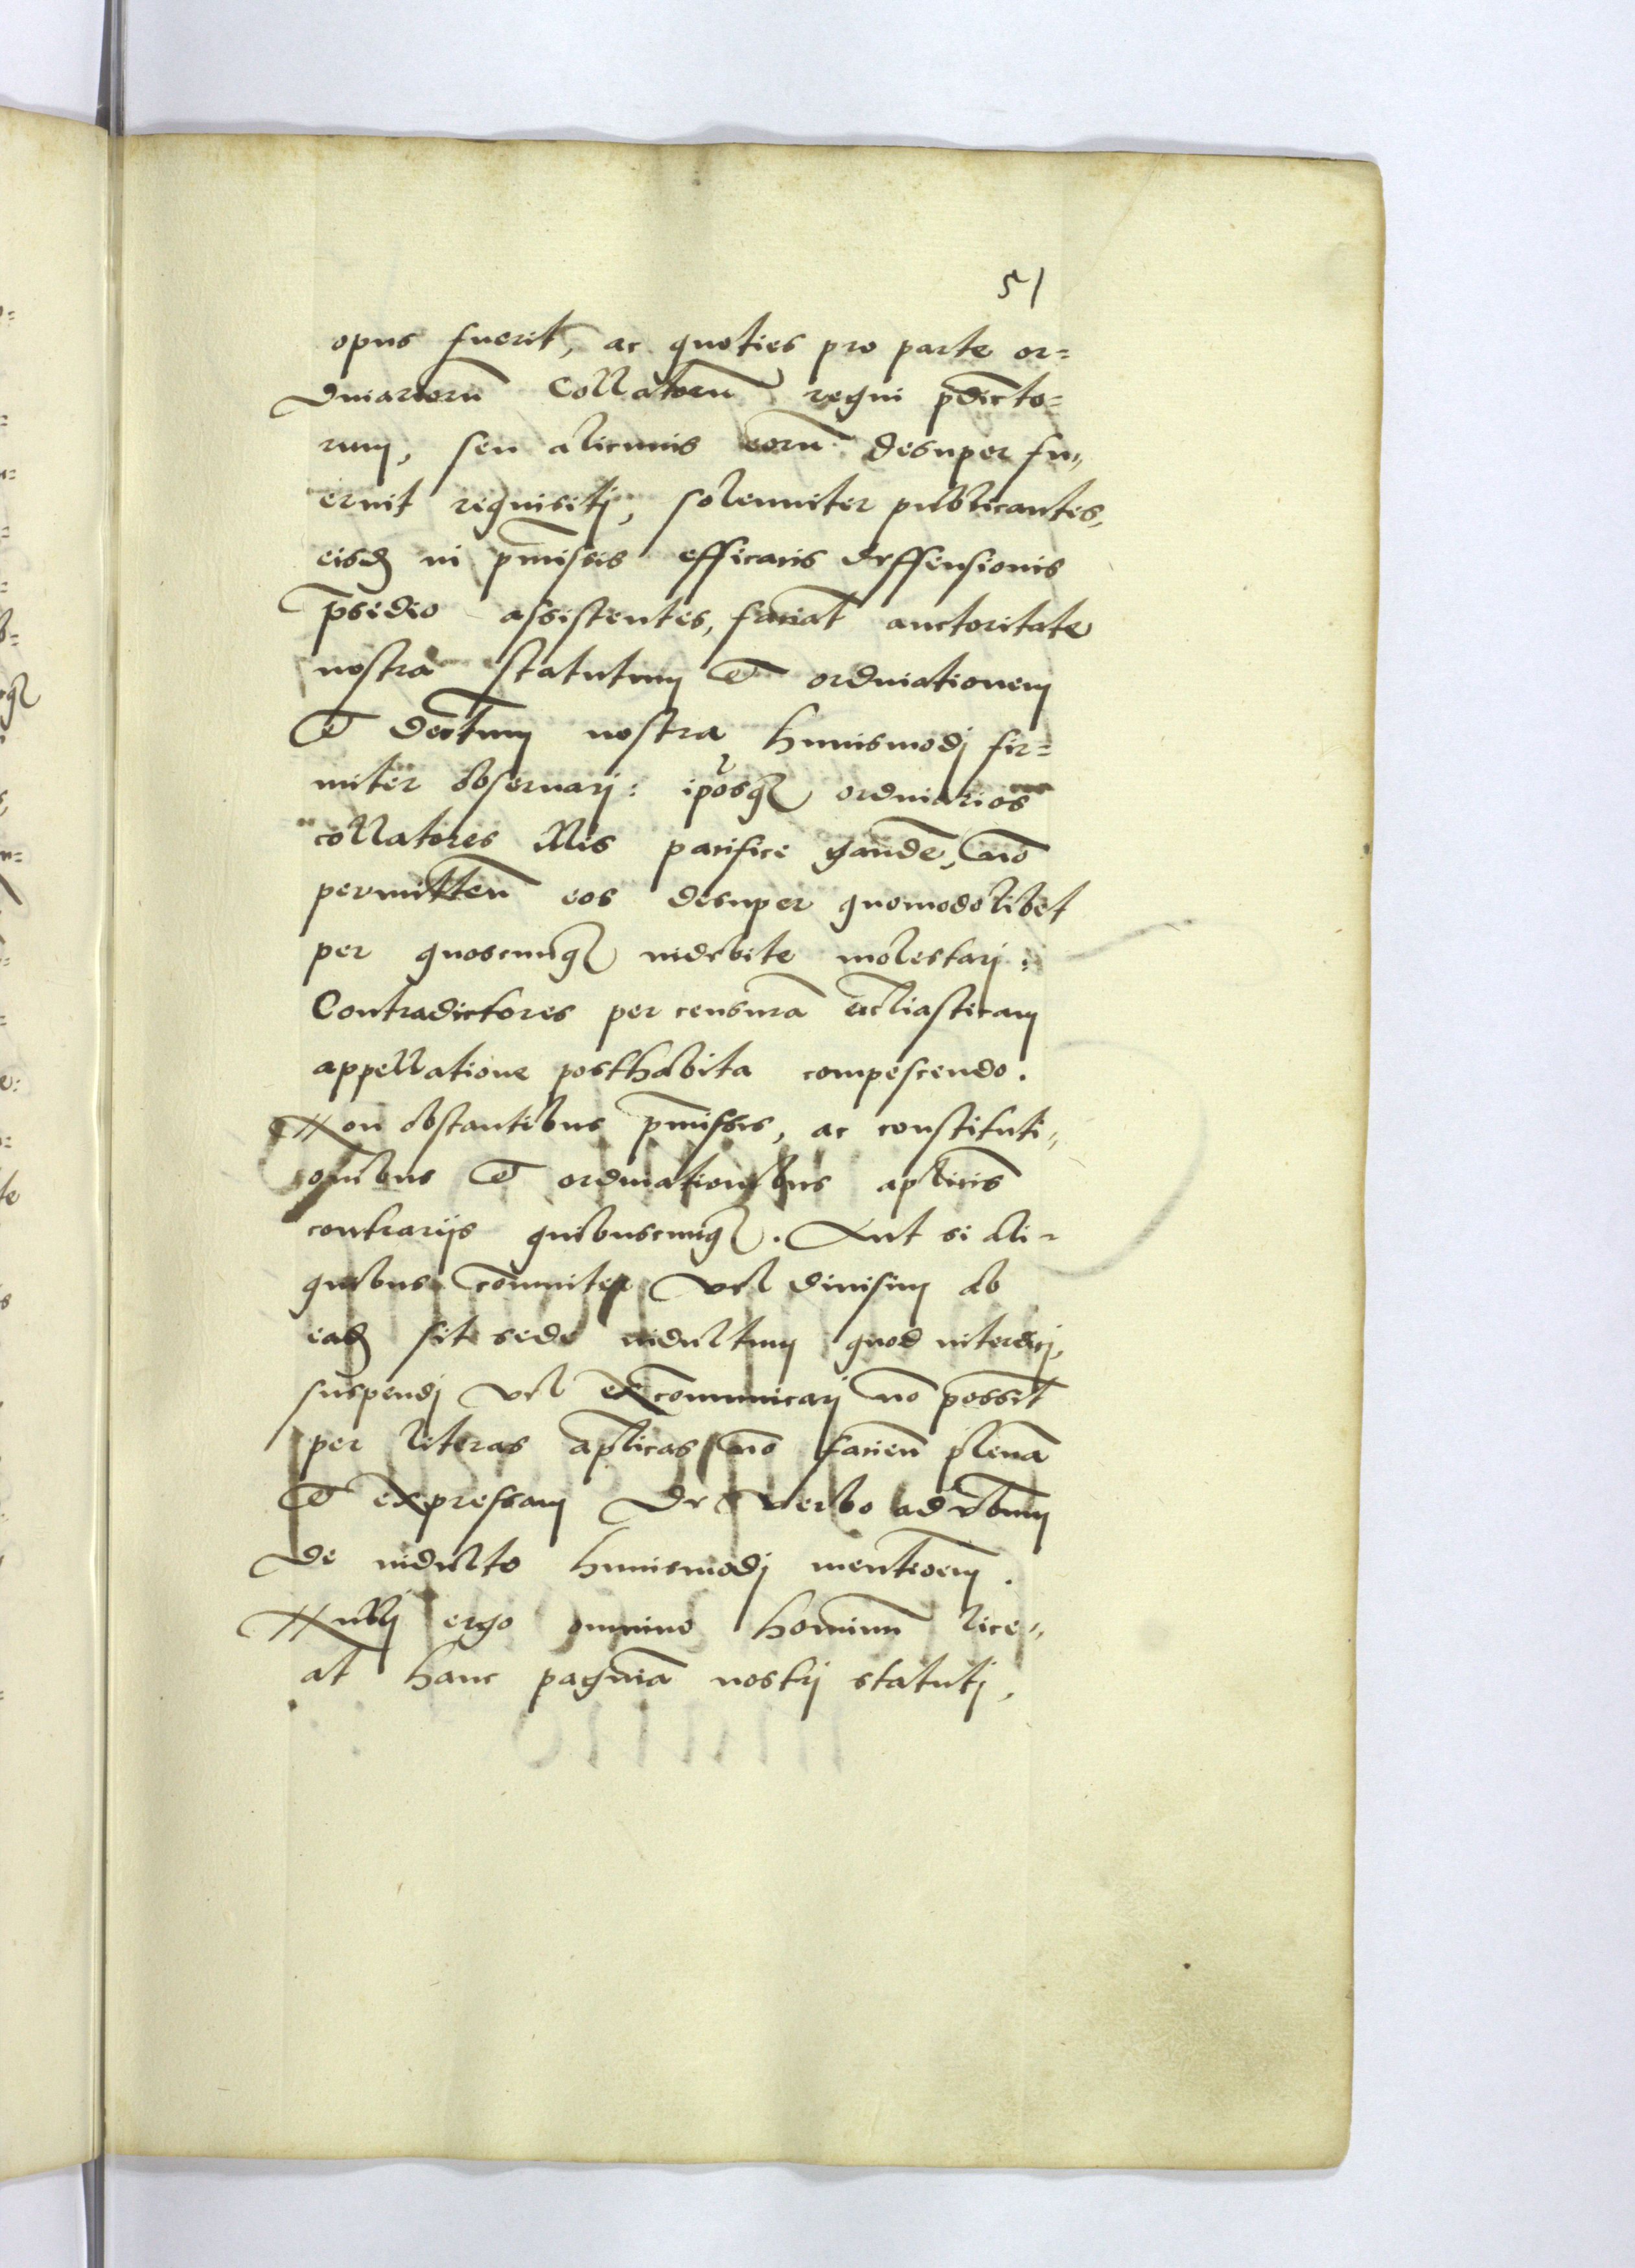 51
opus fuerit, ac quoties pro parte or=
dinariorũ Collatorũ regni p̄dicto=
rum, seu alicuius eorũ desuper fu„
erint requisiti, solemniter publicantes,
eisdẽ in p̄missis efficacis deffensionis
p̄sidio assistentes, faciãt auctoritate
nostra statutum et ordinationem
et decr̃tum nostra huiusmodj fir=
miter obseruarj: ip̃osq̃ ordinarios
collatores illis pacifice gaudẽ, nõ
permitteñ eos desuper quomodolibet
per quoscunq̃ indebite molestarj:
Contradictores per censurã eccl̃iasticam
appellatione posthabita compescendo.
Non obstantibus p̄missis, ac constituti„
onibus et ordinationibus apl̃icis
contrarijs quibuscunq̃. Aut si ali=
quibus com̃uniter vel diuisim ab
eadẽ sit sede indultum quod interdicj,
suspendj vel excom̃unicarj nõ possĩt
per literas apl̃icas nõ facieñ plenã
et expressam de verbo ad verbum
de indulto huiusmodj mentioñem.
Nullj ergo omnino hominũ lice„
at hanc paginã nostrj statutj,